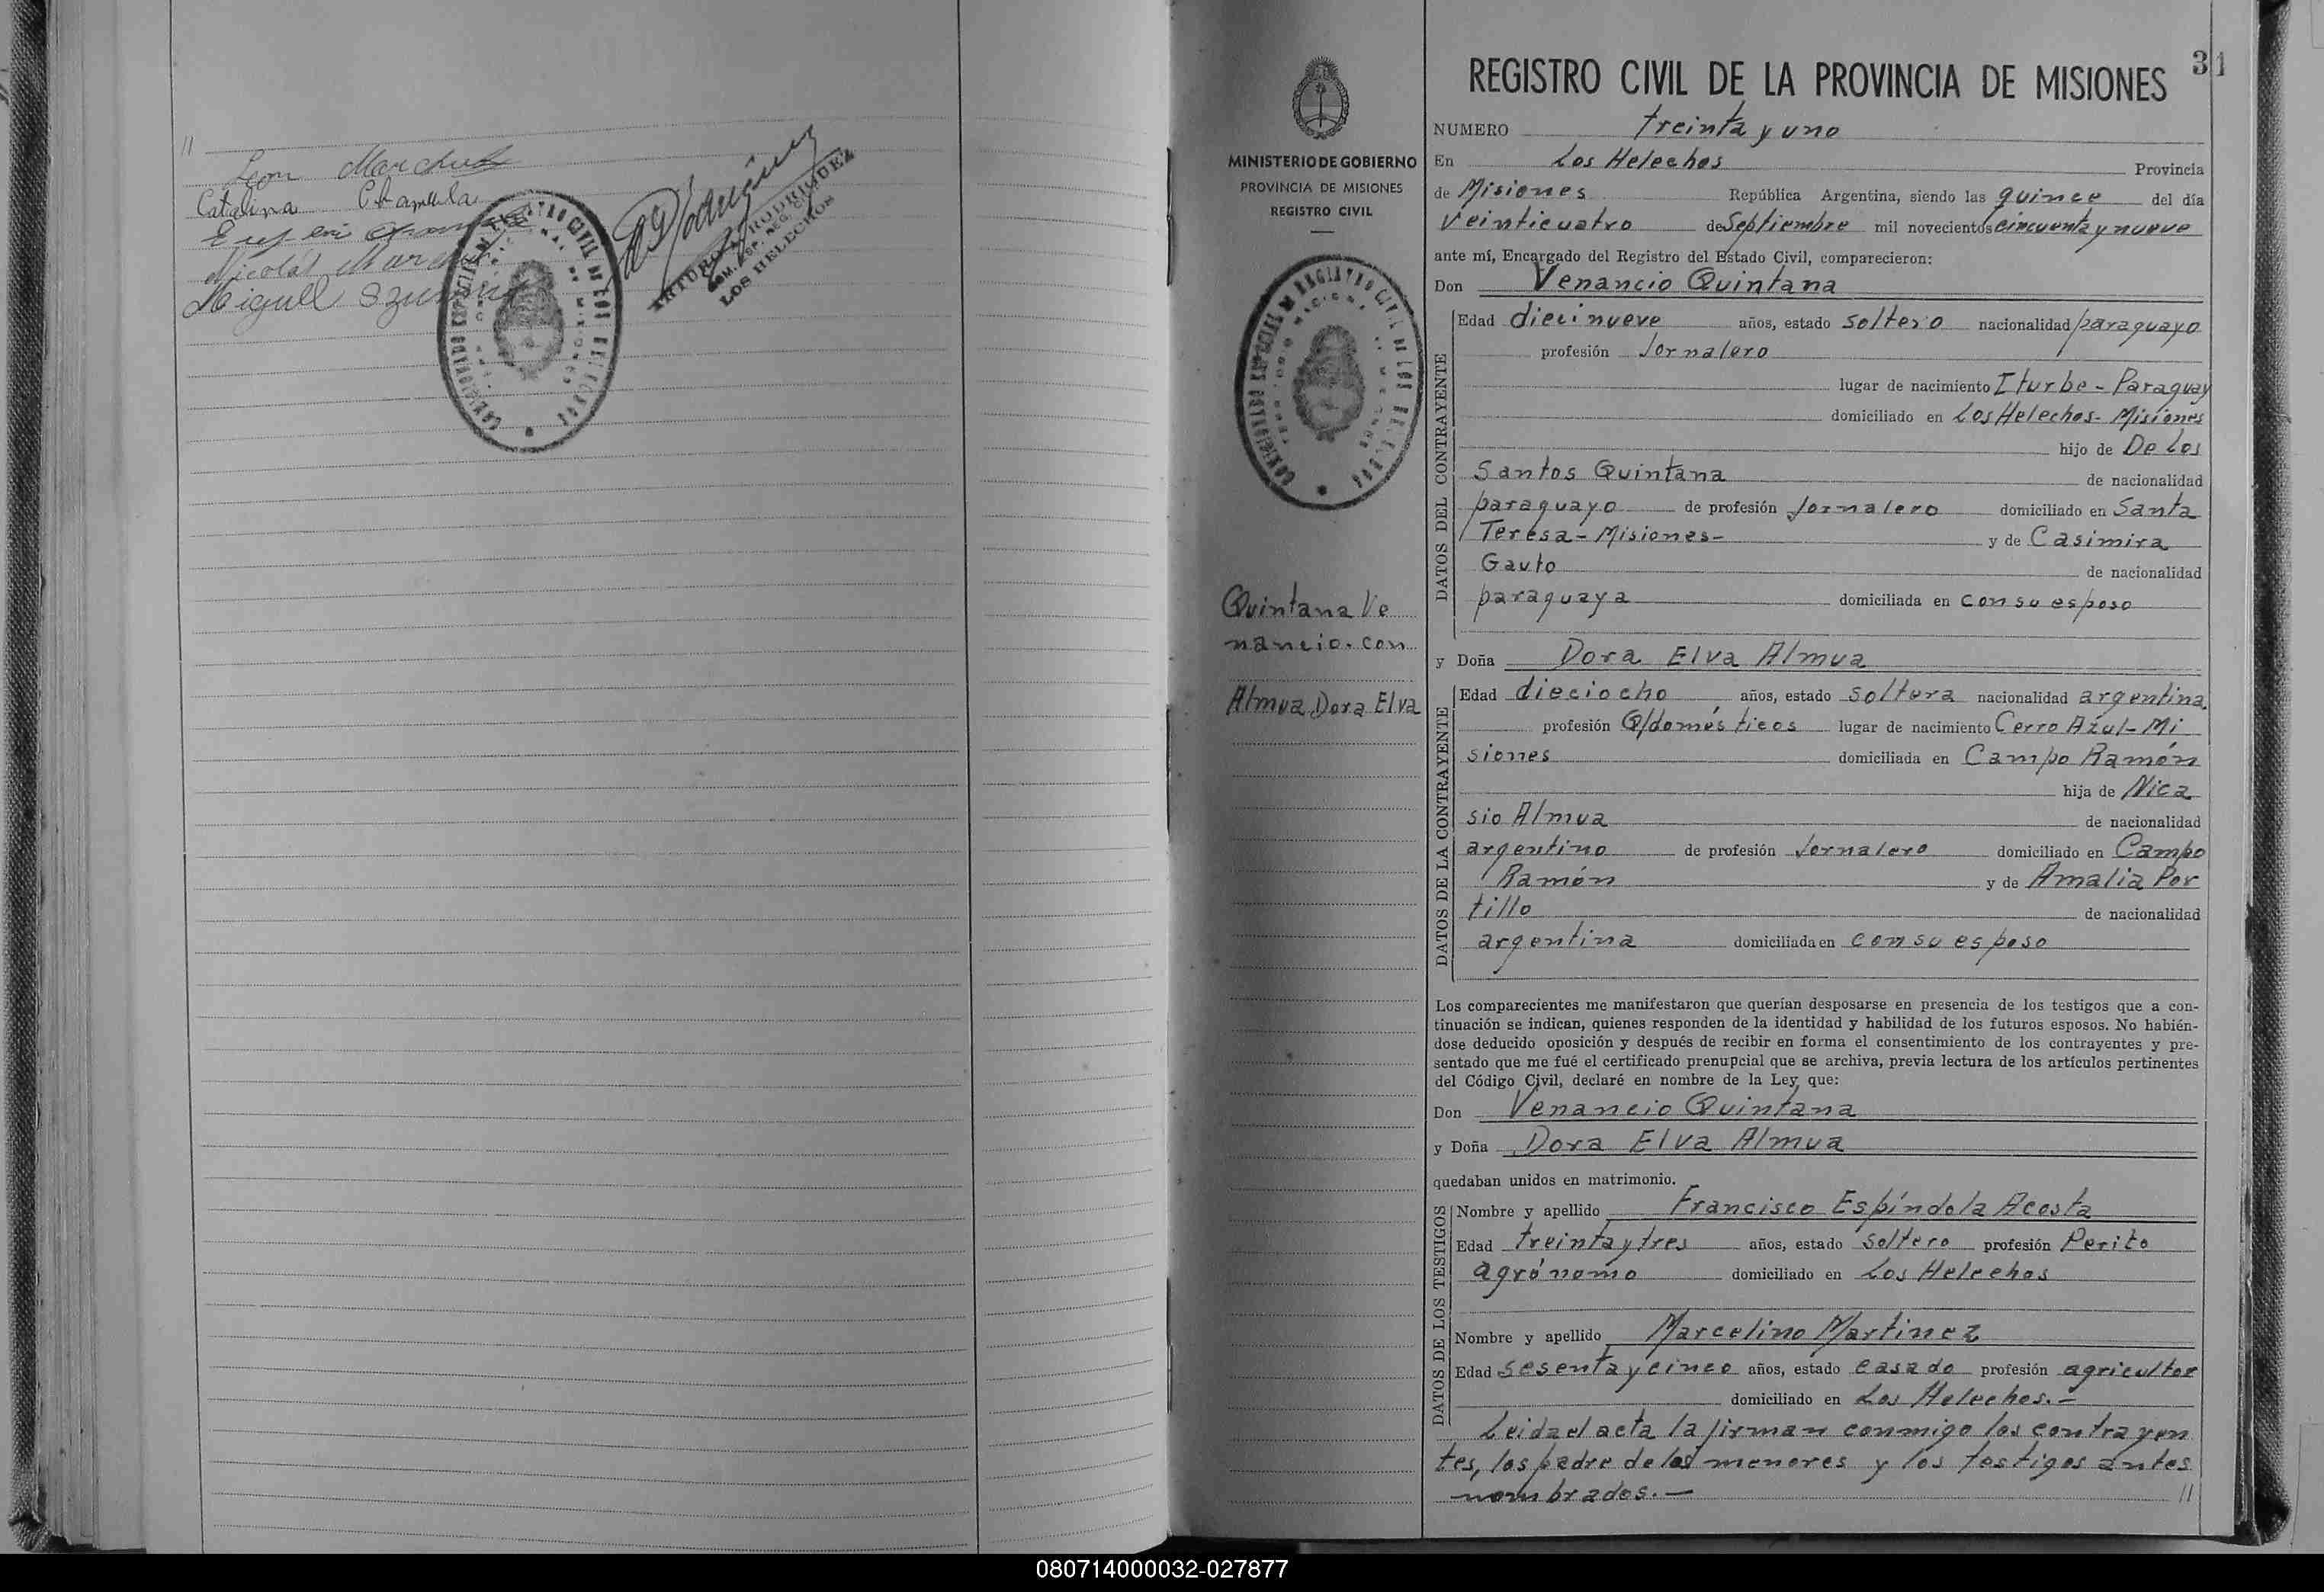 //
Leon
Catalina
Nicolás
Miguel
ARTURO RODRIGUEZ
LOS HELECHOS
MINISTERIO DE GOBIERNO
PROVINCIA DE MISIONES
REGISTRO CIVIL
Quintana Ve
nancio. con
Almua Dora Elva
31
REGISTRO CIVIL DE LA PROVINCIA DE MISIONES
NUMERO treinta y uno
En Los Helechos Provincia
de Misiones República Argentina, siendo las quince del día
veinticuatro de Septiembre mil novecientos cincuenta y nueve
ante mí, Encargado del Registro del Estado Civil, comparecieron:
Don Venancio Quintana
DATOS DEL CONTRAYENTE
Edad diecinueve años, estado soltero nacionalidad paraguayo
profesión Jornalero
lugar de nacimiento Iturbe - Paraguay
domiciliado en Los Helechos - Misiones
hijo de De Los
Santos Quintana de nacionalidad
paraguayo de profesión Jornalero domiciliado en Santa
Teresa - Misiones - y de Casimira
Gauto de nacionalidad
paraguaya domiciliada en con su esposo
y Doña Dora Elva Almua
DATOS DE LA CONTRAYENTE
Edad dieciocho años, estado soltera nacionalidad argentina
profesión Q/domésticos lugar de nacimiento Cerro Azul - Mi
siones domiciliada en Campo Ramón
hija de Nica
sio Almua de nacionalidad
argentino de profesión Jornalero domiciliado en Campo
Ramón y de Amalia Por
tillo de nacionalidad
argentina domiciliada en con su esposo
Los comparecientes me manifestaron que querían desposarse en presencia de los testigos que a con-
tinuación se indican, quienes responden de la identidad y habilidad de los futuros esposos. No habién-
dose deducido oposición y después de recibir en forma el consentimiento de los contrayentes y pre-
sentado que me fué el certificado prenupcial que se archiva, previa lectura de los artículos pertinentes
del Código Civil, declaré en nombre de la Ley que:
Don Venancio Quintana
y Doña Dora Elva Almua
quedaban unidos en matrimonio.
DATOS DE LOS TESTIGOS
Nombre y apellido Francisco Espíndola Acosta
Edad treinta y tres años, estado soltero profesión Perito
agrónomo domiciliado en Los Helechos
Nombre y apellido Marcelino Martinez
Edad sesenta y cinco años, estado casado profesión agricultor
domiciliado en Los Helechos. -
Leida el acta la firman conmigo los contrayen
tes, los padre de los menores y los testigos antes
nombrados. - //
080714000032-027877